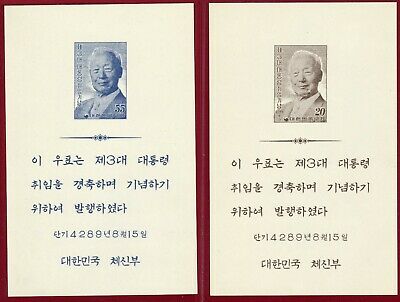 55
대한민국우표
이 우표는 제3대 대통령
취임을 경축하며 기념하기
위하여 발행하였다
단기4289년8월15일
대한민국 체신부
20
대한민국우표
이 우표는 제3대 대통령
취임을 경축하며 기념하기
위하여 발행하였다
단기4289년8월15일
대한민국 체신부